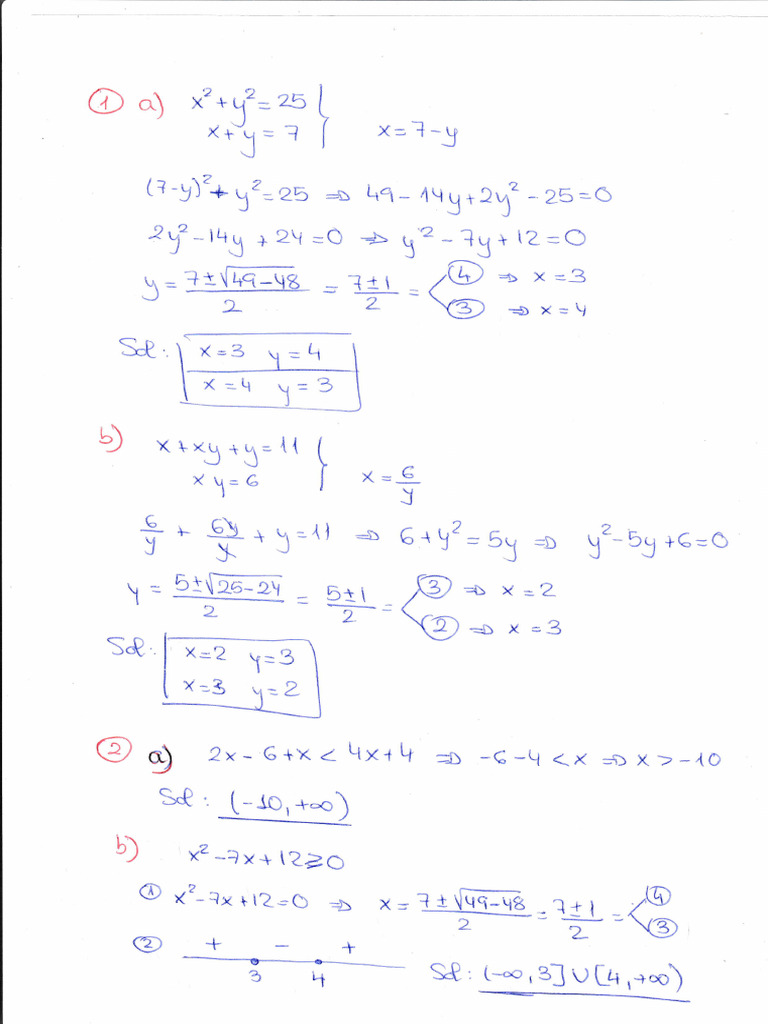 ① a) x² + y² = 25 }
x + y = 7 } x = 7 - y
(7-y)² + y² = 25 ⇒ 49 - 14y + 2y² - 25 = 0
2y² - 14y + 24 = 0 ⇒ y² - 7y + 12 = 0
y = (7 ± √(49-48))/2 = (7 ± 1)/2 = < ④ ⇒ x = 3
③ ⇒ x = 4
Sol: x = 3 y = 4
x = 4 y = 3
b) x + xy + y = 11 }
xy = 6 } x = 6/y
6/y + 6y/y + y = 11 ⇒ 6 + y² = 5y ⇒ y² - 5y + 6 = 0
y = (5 ± √(25-24))/2 = (5 ± 1)/2 = < ③ ⇒ x = 2
② ⇒ x = 3
Sol: x = 2 y = 3
x = 3 y = 2
② a) 2x - 6 + x < 4x + 4 ⇒ -6 - 4 < x ⇒ x > -10
Sol: (-10, +∞)
b) x² - 7x + 12 ≥ 0
① x² - 7x + 12 = 0 ⇒ x = (7 ± √(49-48))/2 = (7 ± 1)/2 = < ④
③
② + - +
3 4 Sol: (-∞, 3] ∪ [4, +∞)